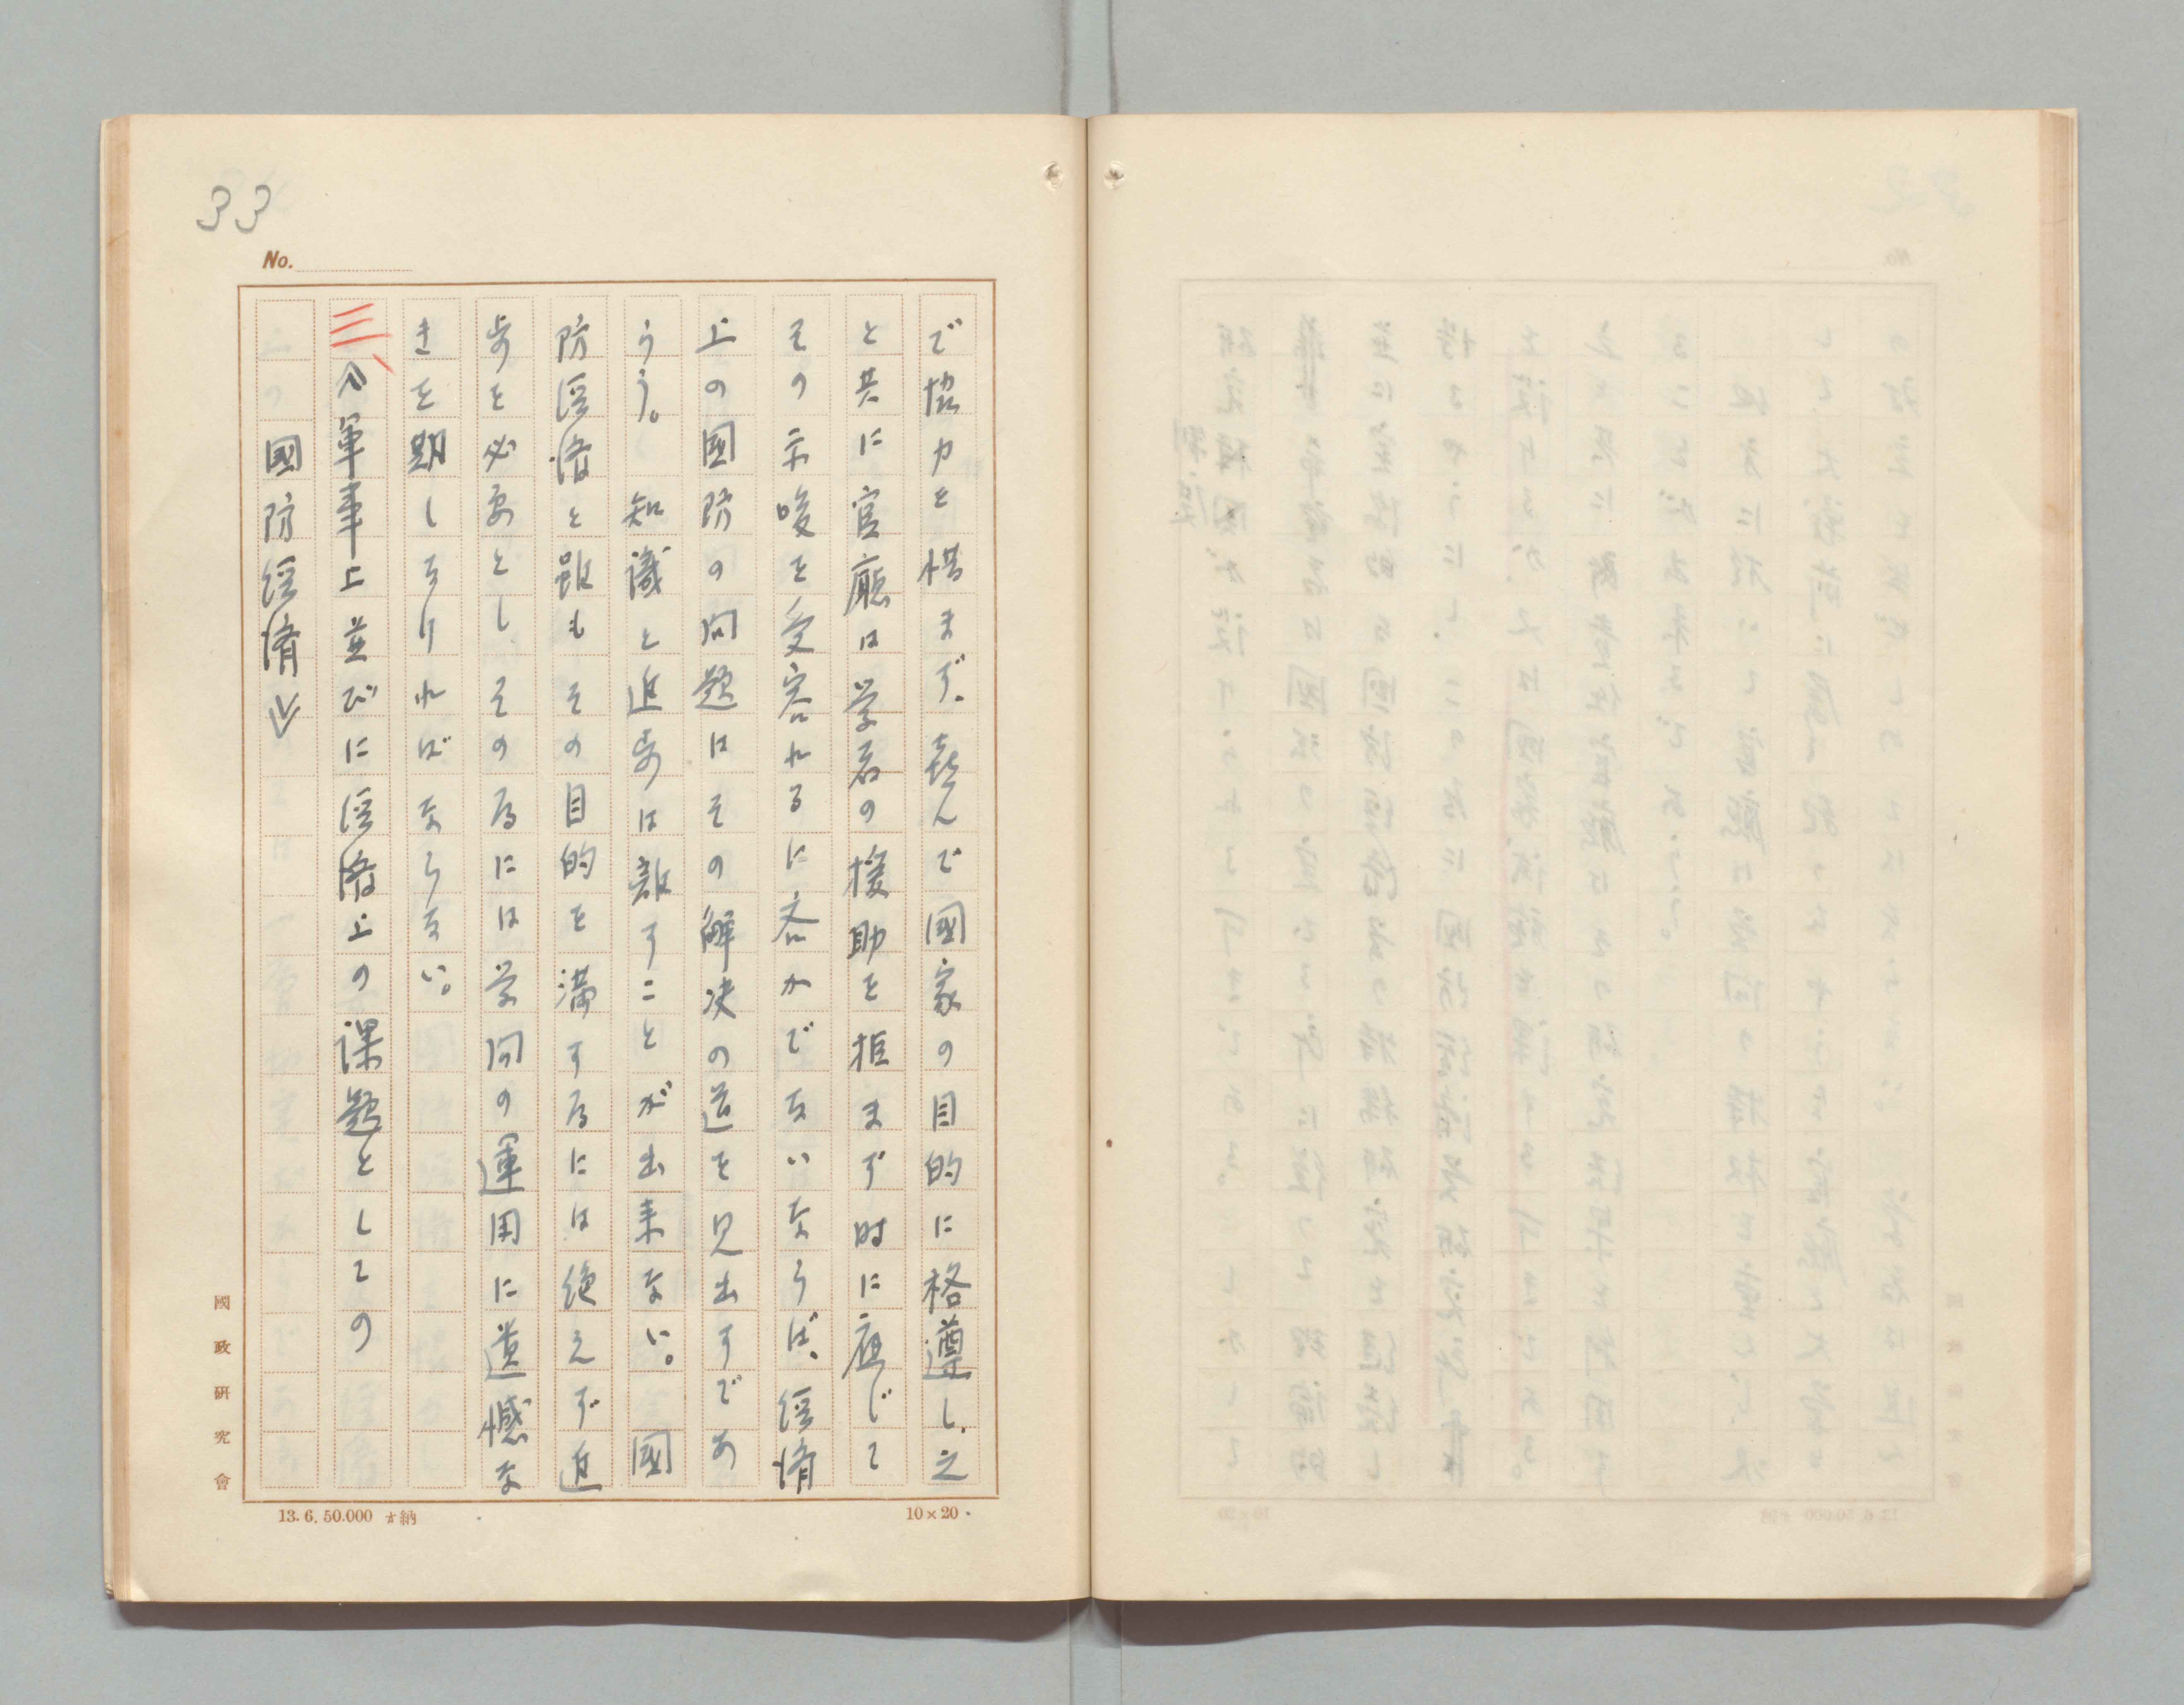 33
No.
で協力を惜まず、喜んで國家の目的に格遵し、之
と共に官廳は学者の援助を拒まず時に應じて
その示唆を受容れるに吝かでないならば、経済
上の國防の問題はその解決の道を見出すであ
らう。知識と進歩は離すことが出来ない。國
防経済と雖もその目的を満す為には絶えず進
歩を必要とし、その為には学問の運用に遺憾な
きを期しなければならない。
三、軍事上並びに経済上の課題としての
國防経済
國政研究會
13.6.50.000 納
10×20